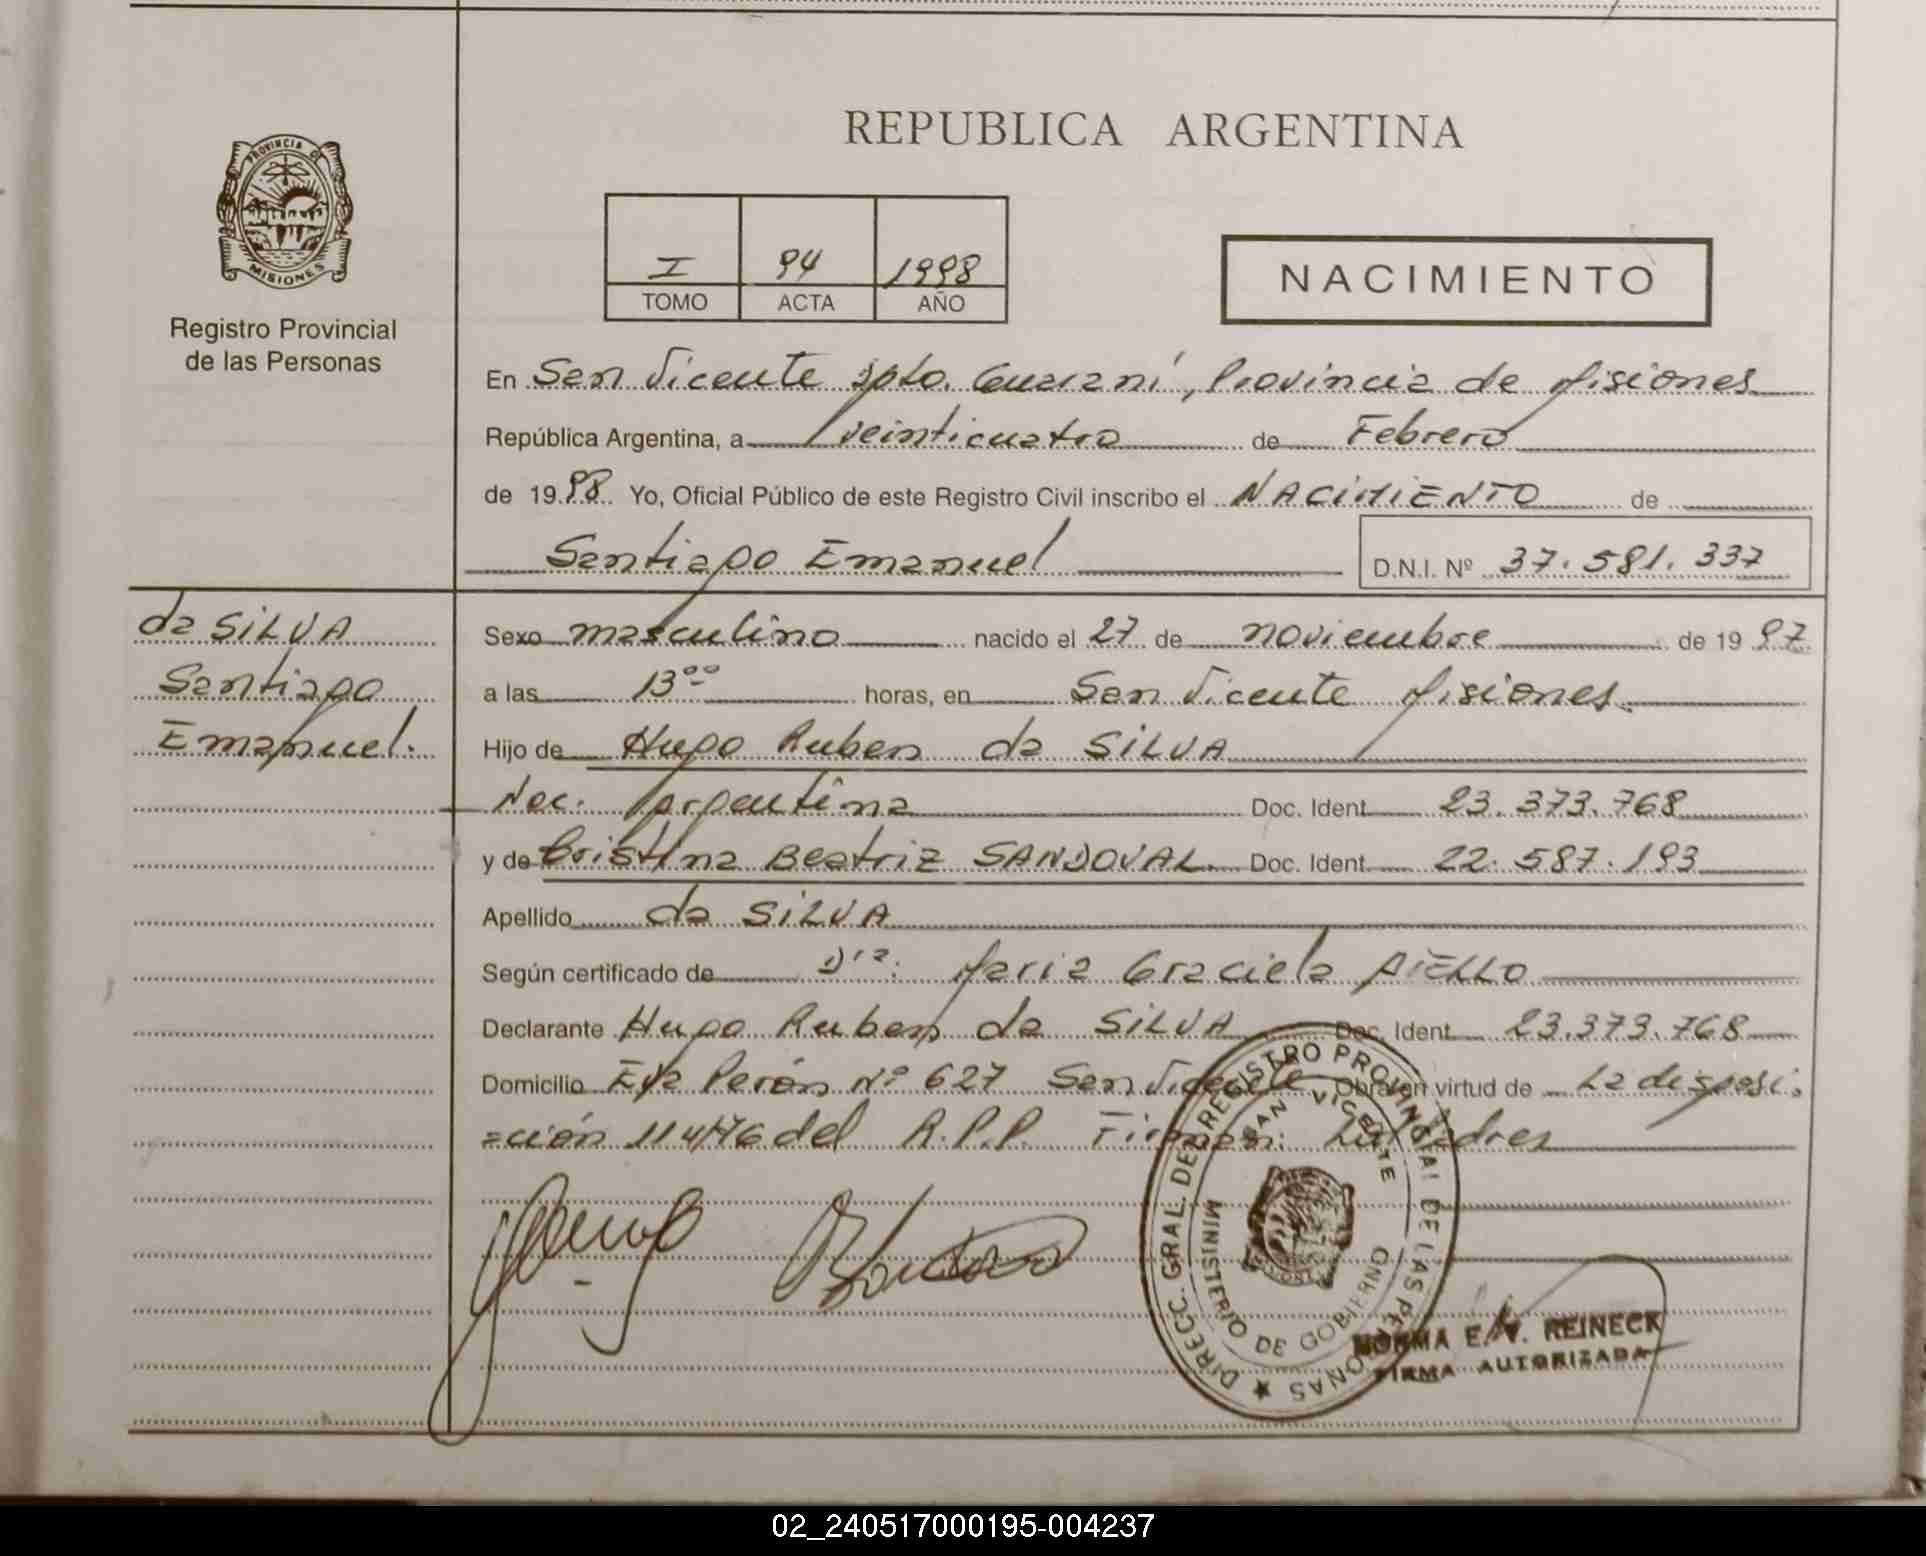 REPUBLICA ARGENTINA
PROVINCIA DE
MISIONES
Registro Provincial
de las Personas
I 94 1998
TOMO ACTA AÑO
NACIMIENTO
En San Vicente Dpto. Guaraní, Provincia de Misiones
República Argentina, a veinticuatro de Febrero
de 1998 Yo, Oficial Público de este Registro Civil inscribo el NACIMIENTO de
Santiago Emanuel D.N.I. Nº 37.581.337
da SILVA
Santiago
Emanuel.
Sexo masculino nacido el 27 de noviembre de 1997
a las 13ºº horas, en San Vicente Misiones.
Hijo de Hugo Ruben da SILVA
Nac. Argentina Doc. Ident 23.373.768
y de Cristina Beatriz SANDOVAL. Doc. Ident 22.587.193
Apellido da SILVA
Según certificado de Dra. Maria Graciela AIELLO
Declarante Hugo Ruben da SILVA Doc. Ident 23.373.768
Domicilio Eva Perón Nº 627 San Vicente Obra en virtud de La disposi
ción 114/76 del R.P.P. Firman: Los Padres
DIRECC. GRAL. DEL REGISTRO PROVINCIAL DE LAS PERSONAS
SAN VICENTE
MINISTERIO DE GOBIERNO
NORMA E. V. REINECK
FIRMA AUTORIZADA
02_240517000195-004237